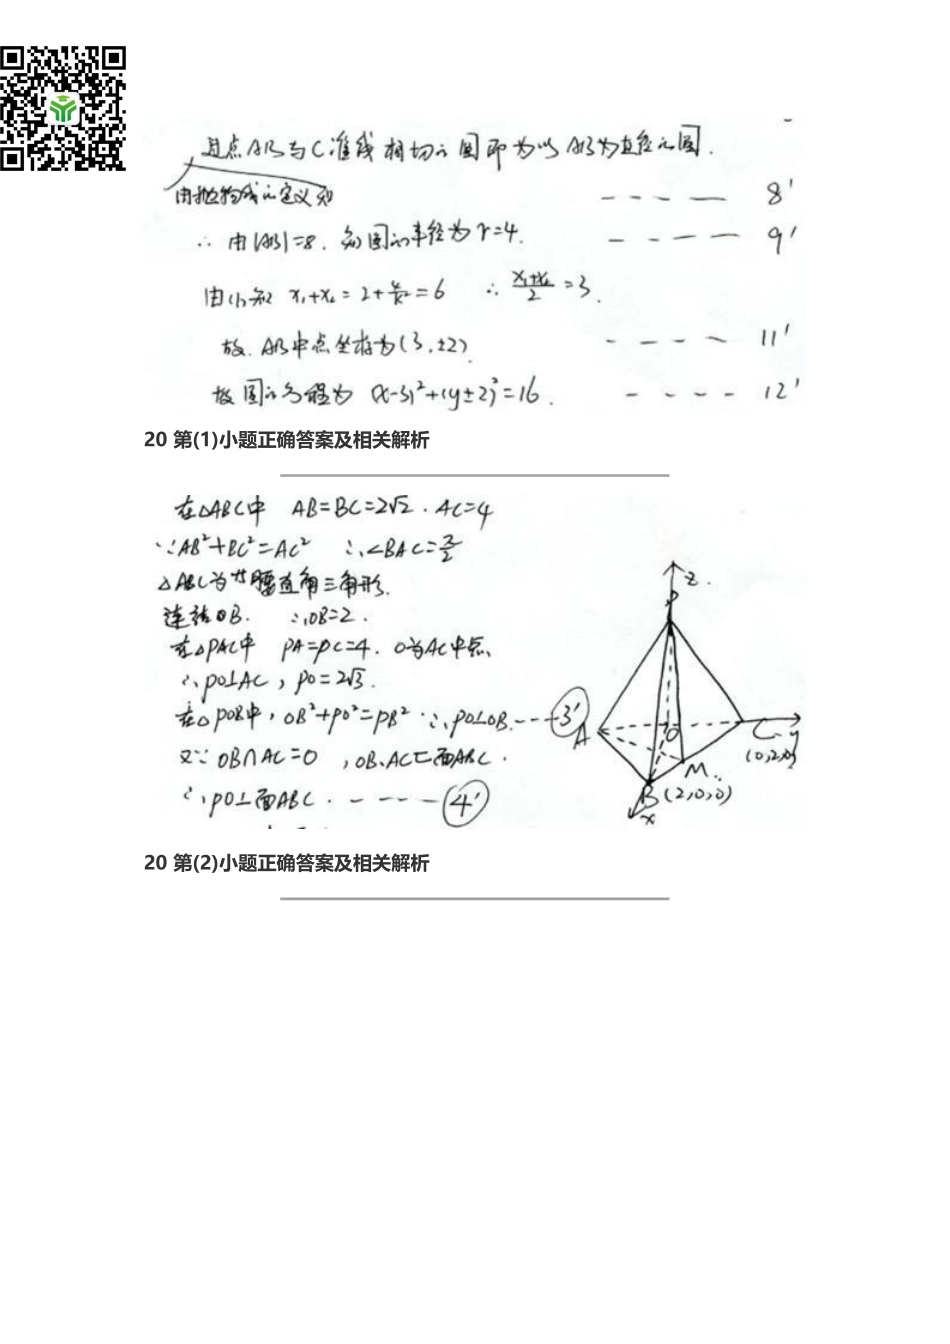 且点AB与C准线相切的圆即为以AB为直径的圆.
由抛物线的定义知 ----- 8'
∴ 由|AB|=8. 知圆的半径为r=4. ----- 9'
由(1)知 x₁+x₂=2+4/k²=6 ∴ (x₁+x₂)/2=3.
故. AB中点坐标为(3,±2) ----- 11'
故圆的方程为 (x-3)²+(y±2)²=16. ---- 12'
20 第(1)小题正确答案及相关解析
在△ABC中 AB=BC=2√2. AC=4
∵AB²+BC²=AC² ∴∠BAC=π/2
△ABC为等腰直角三角形.
连结OB. ∴OB=2.
在△PAC中 PA=PC=4. O为AC中点,
∴PO⊥AC, PO=2√3.
在△POB中, OB²+PO²=PB² ∴PO⊥OB. ---3'
又∵ OB∩AC=O ,OB、AC⊂面ABC.
∴PO⊥面ABC. ----- 4'
z.
P
A
O
C
y
(0,2,0)
M
B(2,0,0)
x
20 第(2)小题正确答案及相关解析